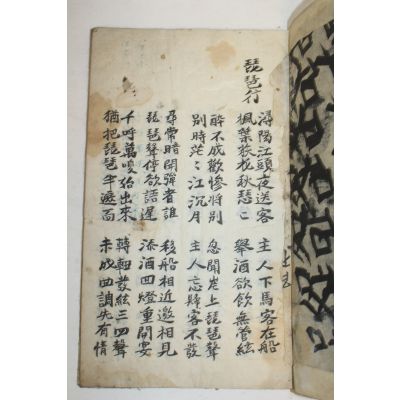 琵琶行
潯陽江頭夜送客
楓葉荻花秋瑟〻
主人下馬客在船
舉酒欲飲無管絃
醉不成歡慘將別
別時茫〻江沉月
忽聞岸上琵琶聲
主人忘歸客不發
尋常暗問彈者誰
琵琶聲停欲語遲
移船相近邀相見
添酒回燈重開宴
千呼萬喚始出來
猶把琵琶半遮面
轉軸發絃三四聲
未成曲調先有情